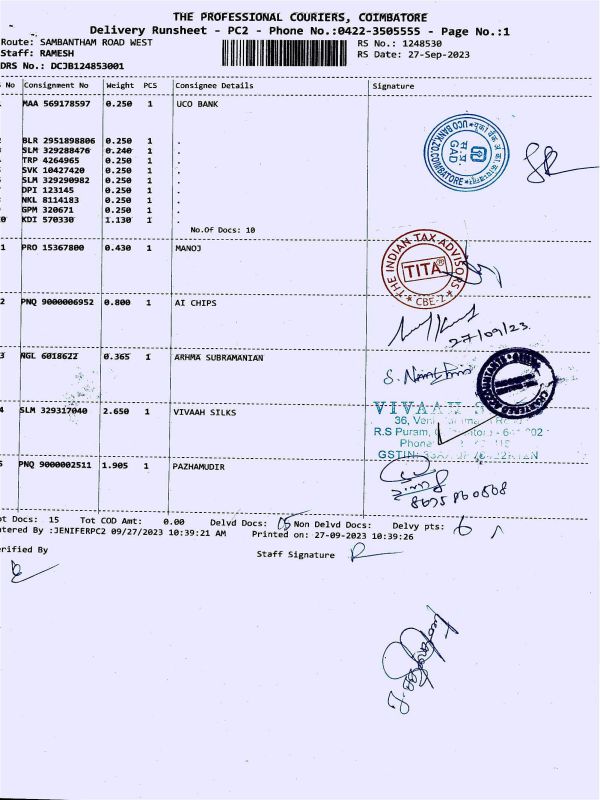 THE PROFESSIONAL COURIERS, COIMBATORE
Delivery Runsheet - PC2 - Phone No.:0422-3505555 - Page No.:1
Route: SAMBANTHAM ROAD WEST RS No.: 1248530
Staff: RAMESH RS Date: 27-Sep-2023
DRS No.: DCJB124853001
No Consignment No Weight PCS Consignee Details Signature
MAA 569178597 0.250 1 UCO BANK
BLR 2951898806 0.250 1 .
SLM 329288476 0.240 1 .
TRP 4264965 0.250 1 .
SVK 10427420 0.250 1 .
SLM 329290982 0.250 1 .
DPI 123145 0.250 1 .
NKL 8114183 0.250 1 .
GPM 320671 0.250 1 .
0 KDI 570330 1.130 1 .
No.Of Docs: 10
UCO BANK, ZO, COIMBATORE
GAD
1 PRO 15367800 0.430 1 MANOJ
THE INDIAN TAX ADVISORS
TITA
CBE-2
2 PNQ 9000006952 0.800 1 AI CHIPS
27/09/23
3 NGL 6018622 0.365 1 ARHMA SUBRAMANIAN
CHARTERED ACCOUNTANTS
4 SLM 329317040 2.650 1 VIVAAH SILKS
VIVAAH
36,
R.S Puram,
Phone
GSTIN:
PNQ 9000002511 1.905 1 PAZHAMUDIR
ot Docs: 15 Tot COD Amt: 0.00 Delvd Docs: 15 Non Delvd Docs: Delvy pts: 6
tered By :JENIFERPC2 09/27/2023 10:39:21 AM Printed on: 27-09-2023 10:39:26
erified By Staff Signature